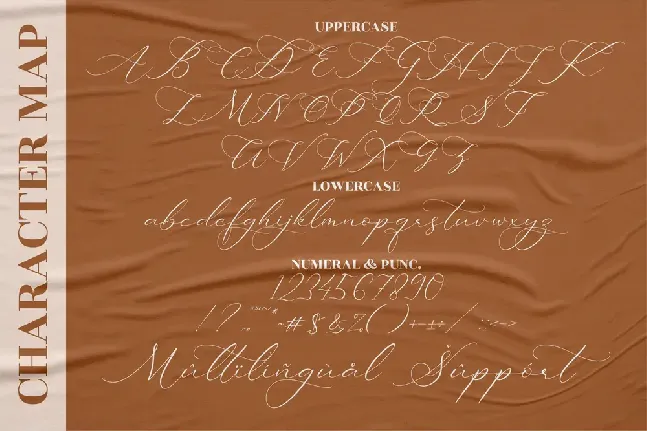 CHARACTER MAP
UPPERCASE
A B C D E F G H I J K
L M N O P Q R S T
U V W X Y Z
LOWERCASE
abcdefghijklmnopqrstuvwxyz
NUMERAL & PUNC.
1234567890
! ? # $ & % ( ) /
Múltïlïñgüål Śüppórt